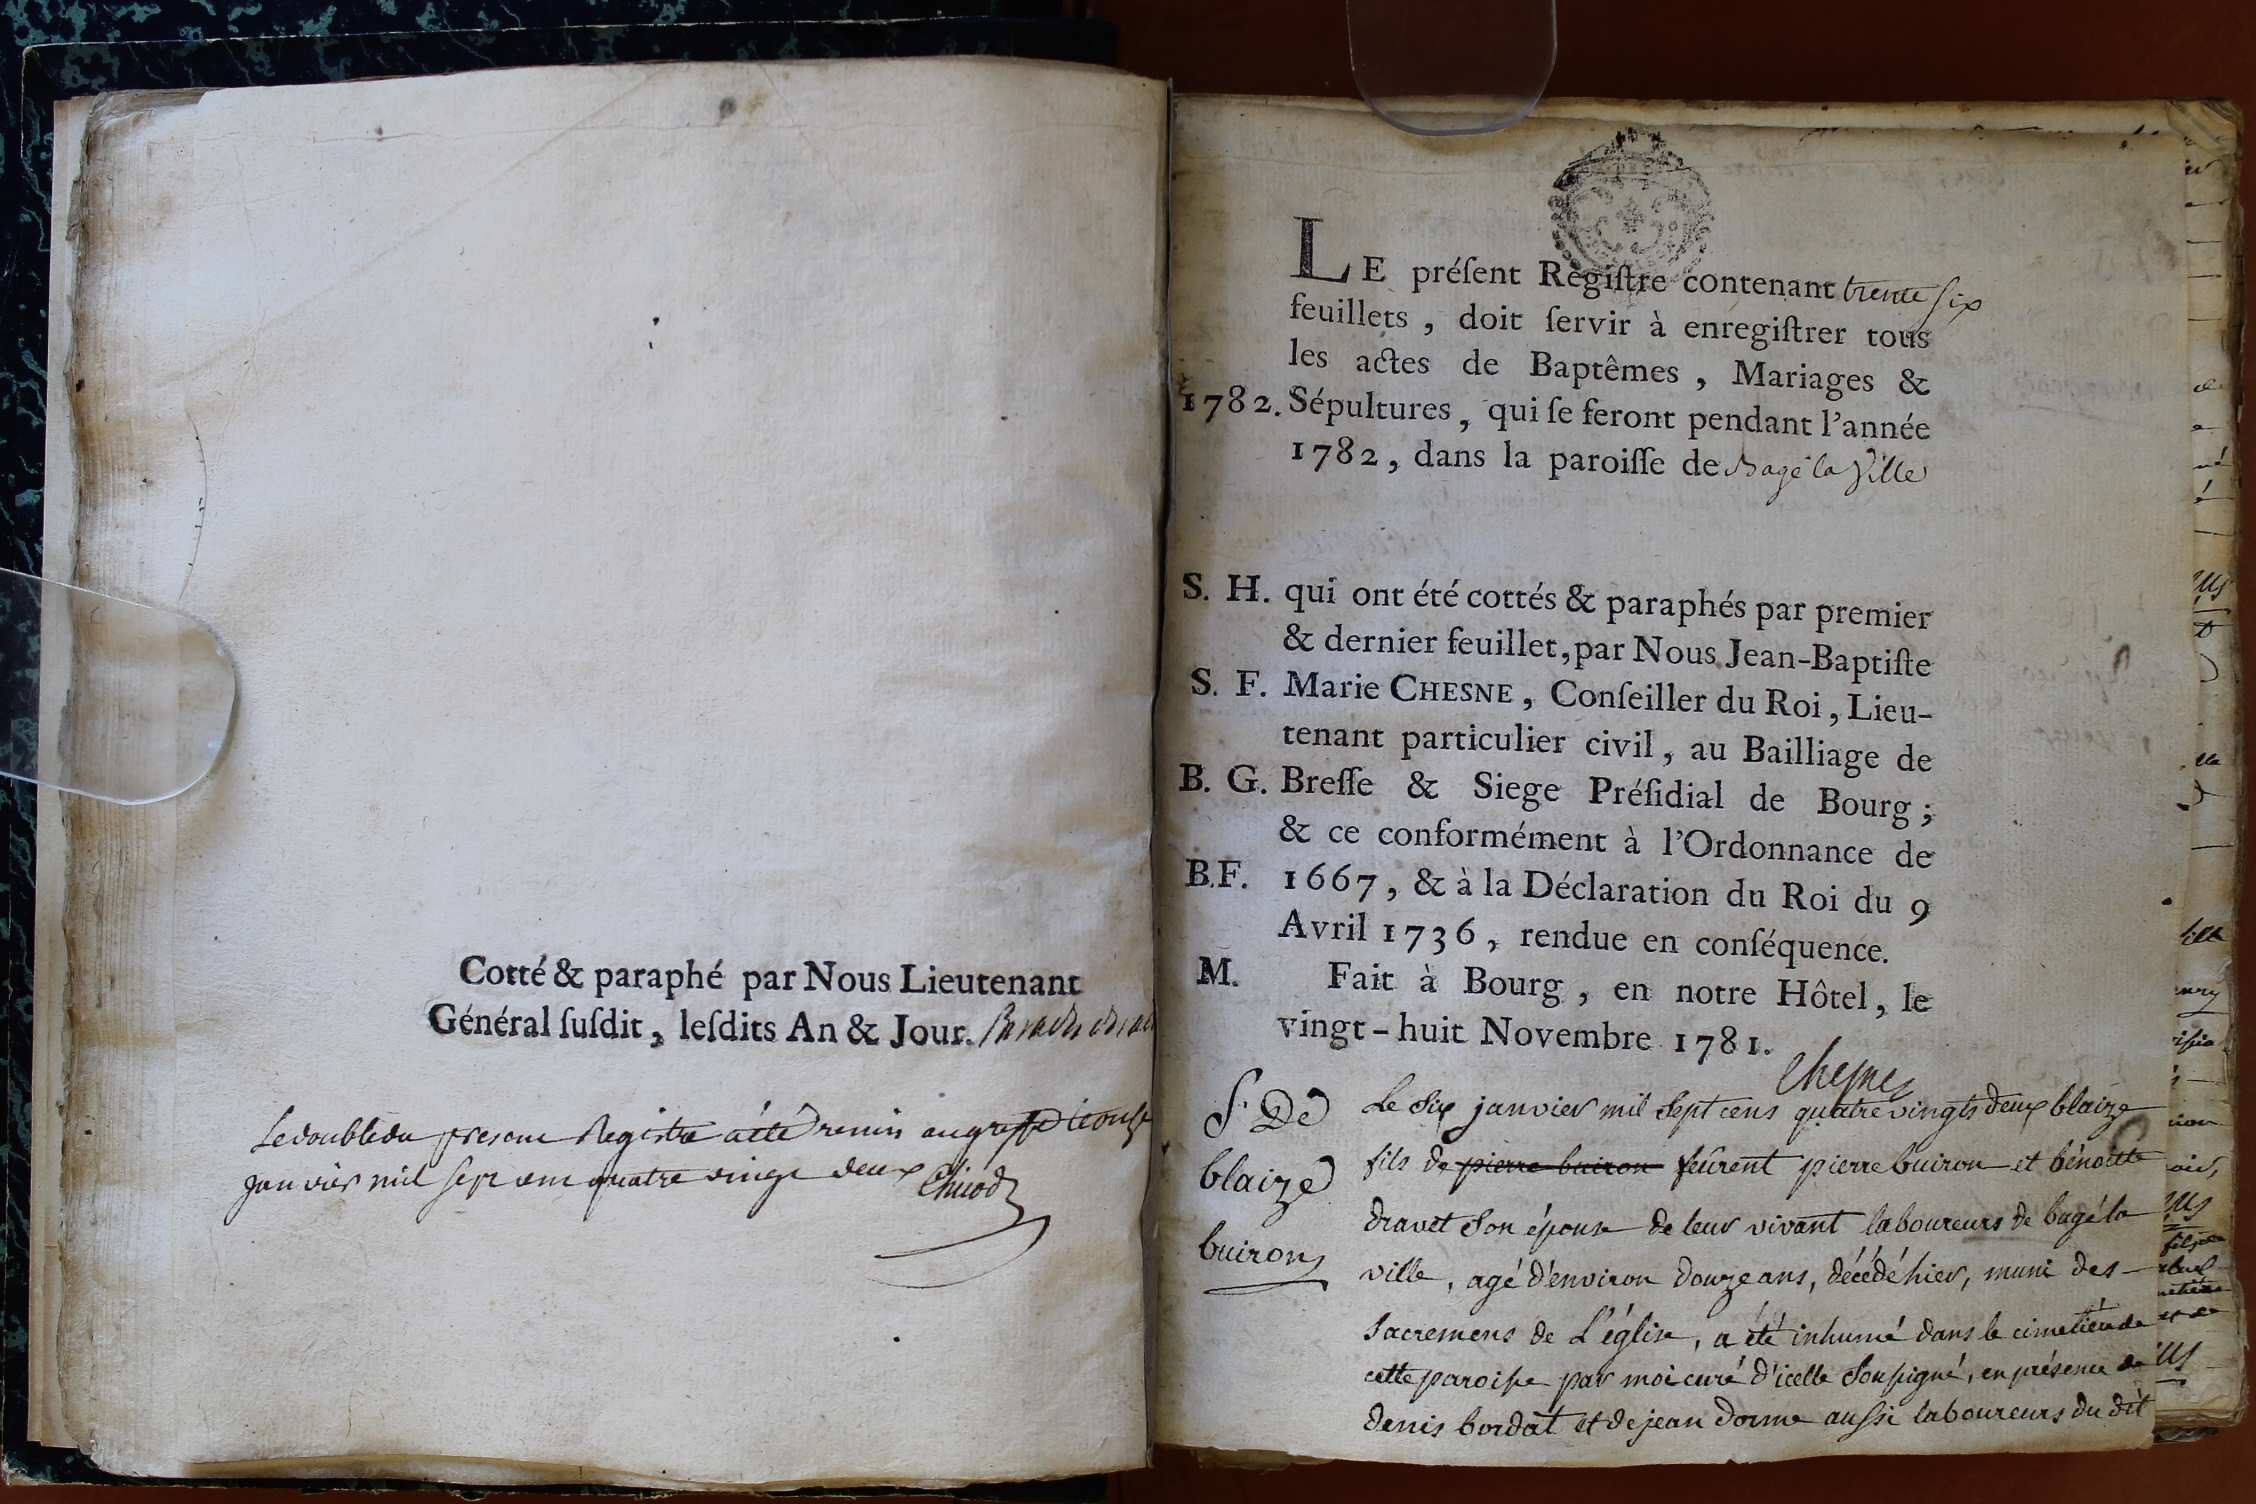 Cotté & paraphé par Nous Lieutenant
Général ſuſdit, leſdits An & Jour.
Le double du present Registre a été remis au greffe le onze
janvier mil sept cent quatre vingt deux
LE préſent Regiſtre contenant trente six
feuillets, doit ſervir à enregiſtrer tous
les actes de Baptêmes, Mariages &
1782. Sépultures, qui ſe feront pendant l'année
1782, dans la paroiſſe de Bagé la Ville
S. H. qui ont été cottés & paraphés par premier
& dernier feuillet, par Nous Jean-Baptiſte
S. F. Marie CHESNE, Conſeiller du Roi, Lieu-
tenant particulier civil, au Bailliage de
B. G. Breſſe & Siege Préſidial de Bourg;
& ce conformément à l'Ordonnance de
B.F. 1667, & à la Déclaration du Roi du 9
Avril 1736, rendue en conſéquence.
M. Fait à Bourg, en notre Hôtel, le
vingt-huit Novembre 1781.
Chesne
S. De
blaize
buiron
Le Six janvier mil Sept cens quatre vingts deux blaize
fils de pierre buiron feûrent pierre buiron et bénoitte
dravet Son épouse de leur vivant laboureurs de bagé la
ville, agé d'environ douze ans, décédé hier, muni des
Sacremens de L'église, a été inhumé dans le cimetière de
cette paroisse par moi curé d'icelle Soussigné, en présence de
denis bordat et de jean dorme aussi laboureurs du dit